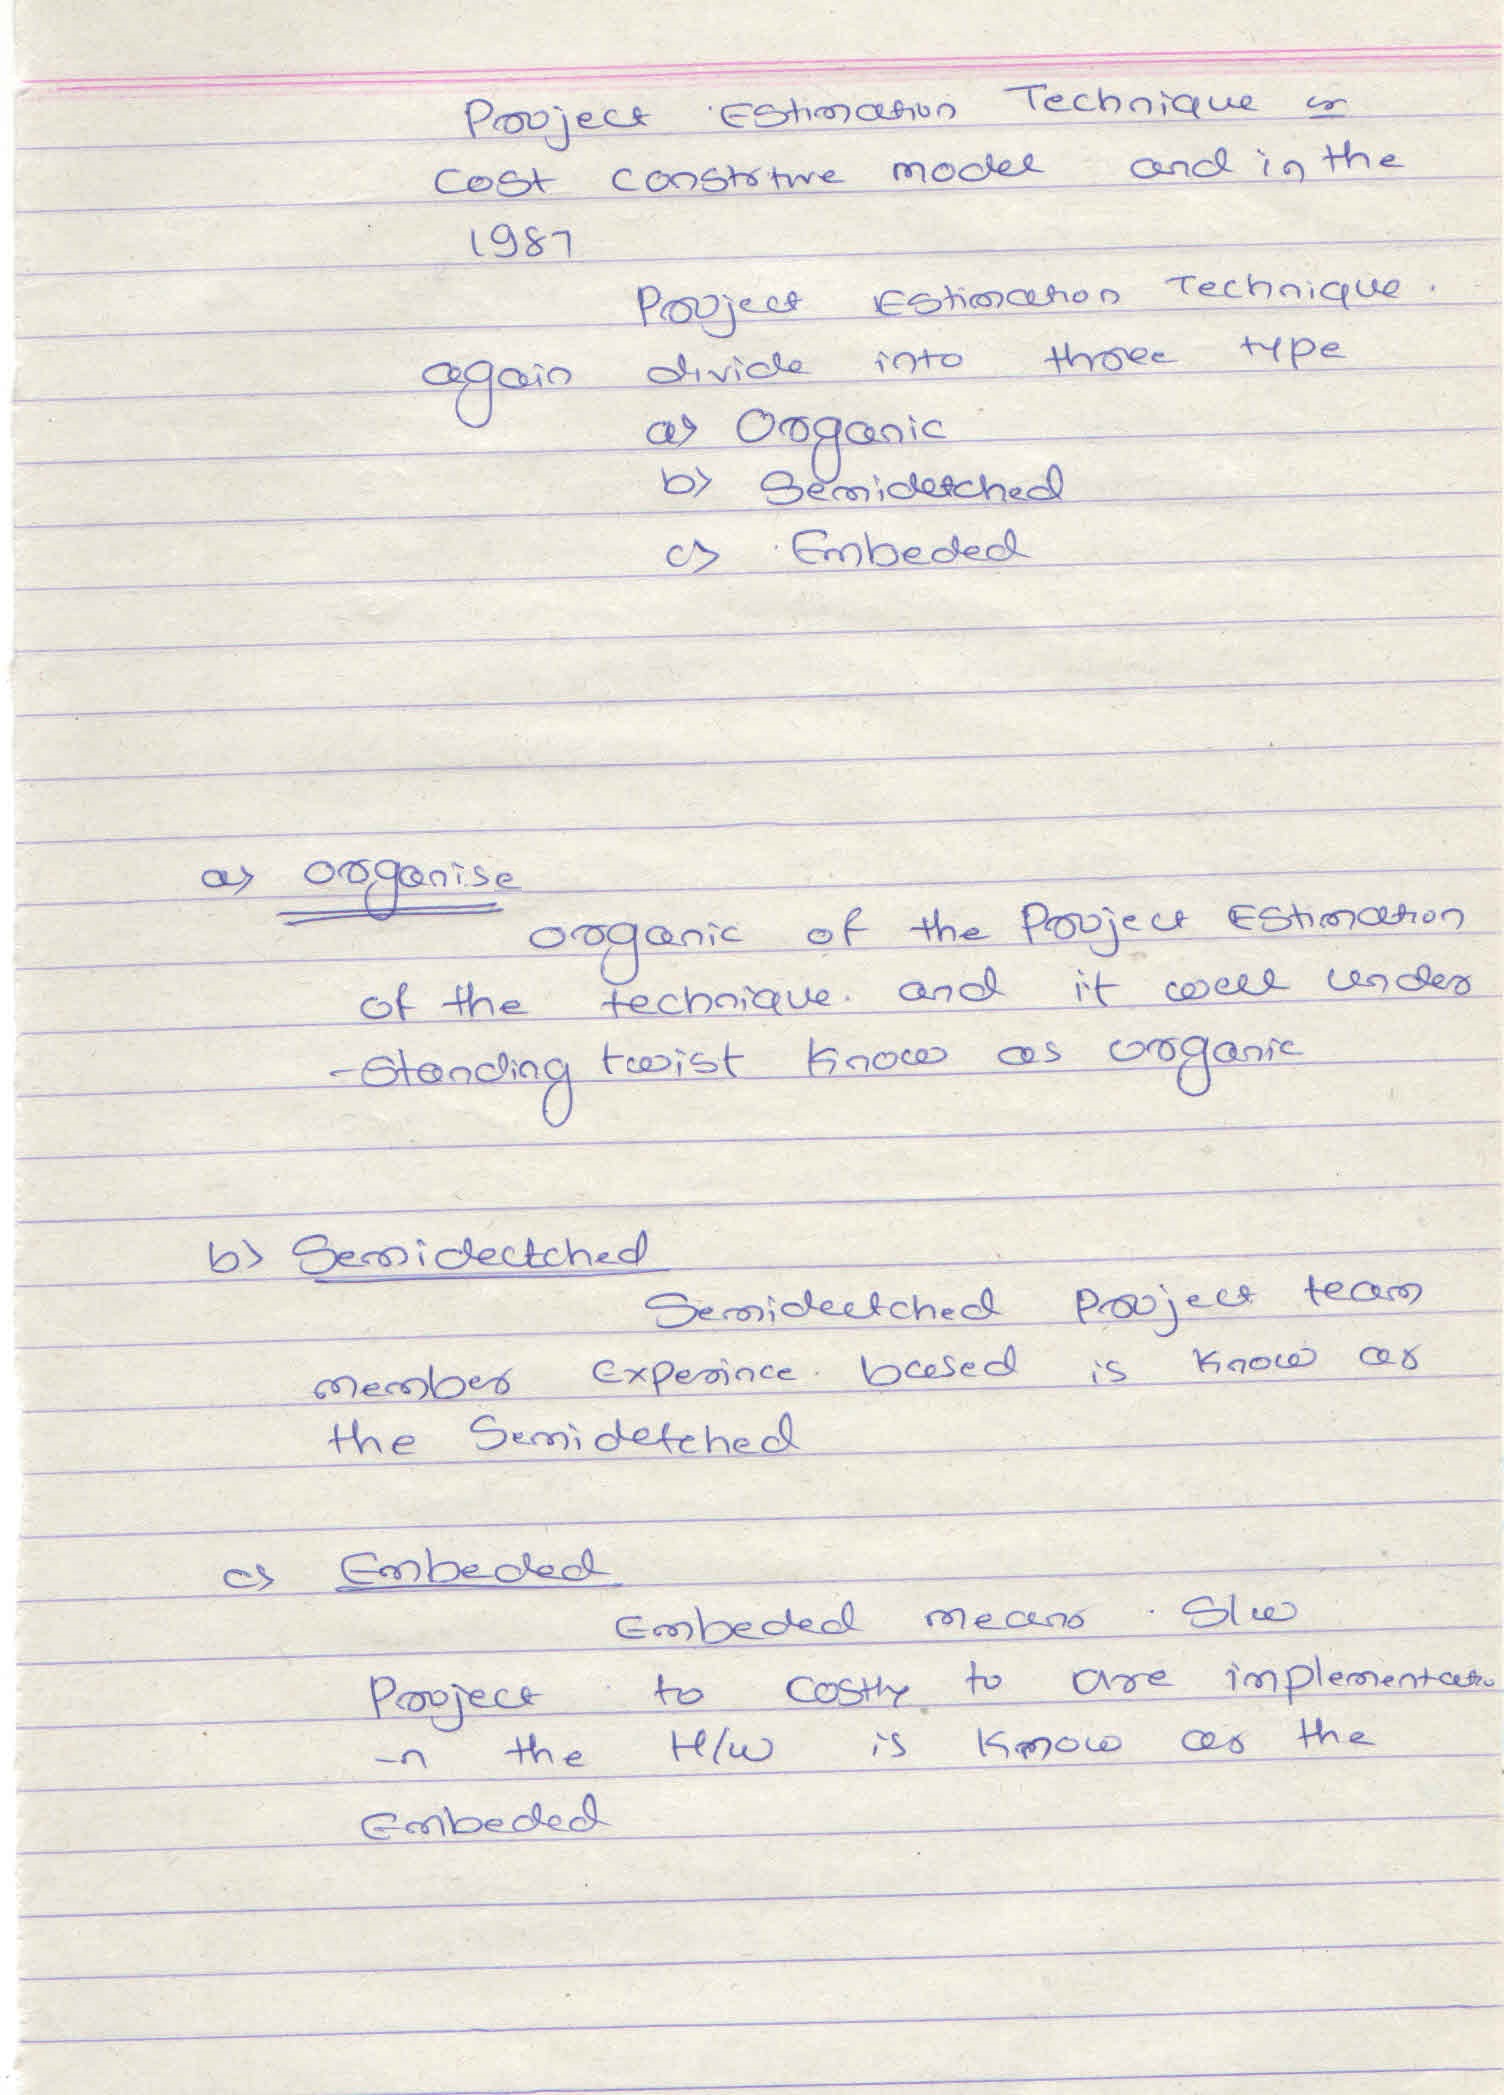 Project Estimation Technique is
cost constrtive model and in the
1987
Project Estimation Technique.
again divide into three type
a) Organic
b) Semidetched
c) Embeded
a) organise
organic of the Project Estimation
of the technique. and it well under
-standing twist know as organic
b) Semidectched
Semidectched Project team
member Experince based is know as
the Semidetched
c) Embeded
Embeded means S/w
Project to costly to are implementatio
-n the H/w is know as the
Embeded